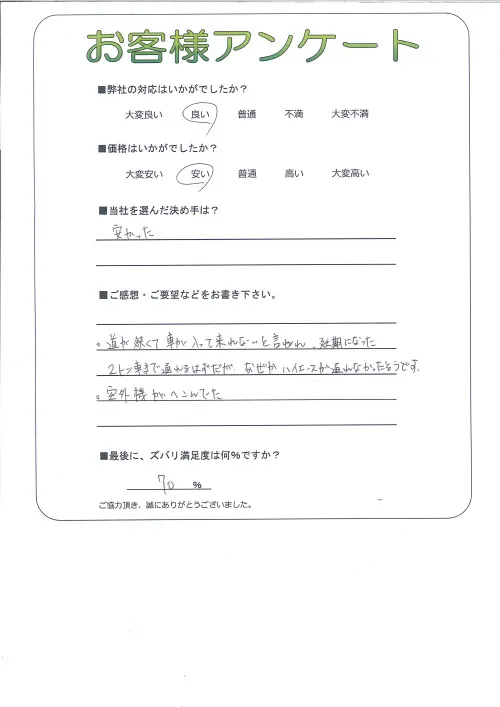 お客様アンケート
■弊社の対応はいかがでしたか？
大変良い 良い 普通 不満 大変不満
■価格はいかがでしたか？
大変安い 安い 普通 高い 大変高い
■当社を選んだ決め手は？
安かった
■ご感想・ご要望などをお書き下さい。
。道が狭くて車が入って来れないと言われ、延期になった
2トン車まで通れるはずだが、なぜかハイエースが通れなかったそうです。
。室外機がへこんでた
■最後に、ズバリ満足度は何％ですか？
70 ％
ご協力頂き、誠にありがとうございました。